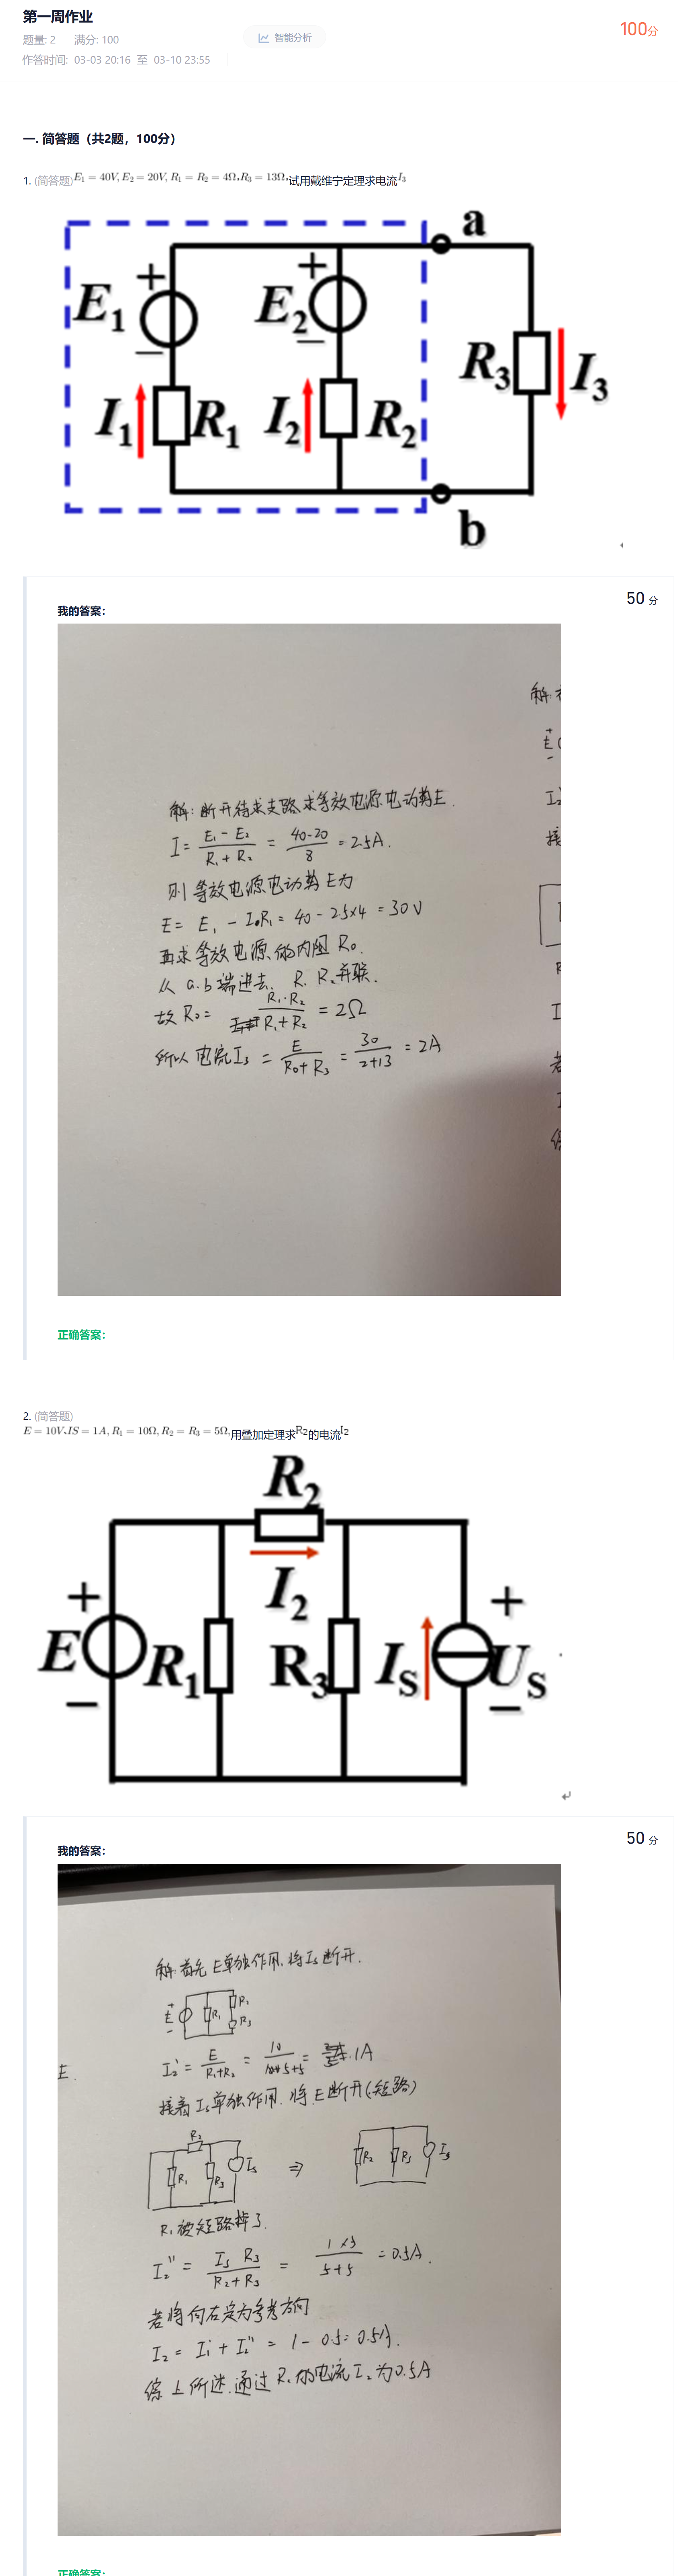 第一周作业
题量: 2 满分: 100
作答时间: 03-03 20:16 至 03-10 23:55
智能分析
100分
一. 简答题（共2题，100分）
1. (简答题)E₁ = 40V, E₂ = 20V, R₁ = R₂ = 4Ω,R₃ = 13Ω,试用戴维宁定理求电流I₃
a
E₁
+
−
E₂
+
−
R₃
I₃
I₁
R₁
I₂
R₂
b
50 分
我的答案:
解: 断开待求支路求等效电源电动势E.
I = (E₁ − E₂)/(R₁ + R₂) = (40-20)/8 = 2.5A.
则等效电源电动势E为
E = E₁ − I R₁ = 40 − 2.5×4 = 30V
再求等效电源的内阻 R₀.
从 a.b 端进去, R₁ R₂ 并联.
故 R₀ = (R₁·R₂)/(R₁+R₂) = 2Ω
所以 电流I₃ = E/(R₀+R₃) = 30/(2+13) = 2A
正确答案:
2. (简答题)
E = 10V,IS = 1A, R₁ = 10Ω, R₂ = R₃ = 5Ω,用叠加定理求R₂的电流I₂
R₂
I₂
+
E
−
R₁
R₃
I_S
+
U_S
−
50 分
我的答案:
解: 首先 E单独作用, 将Is断开.
+
E
−
R₁
R₂
R₃
E.
I₂' = E/(R₁+R₂) = 10/(5+5) = 1A
接着 Is单独作用, 将E断开(短路)
R₂
R₁
R₃
Is
⇒
R₂
R₃
Is
R₁被短路掉了.
I₂'' = (Is R₃)/(R₂+R₃) = (1×5)/(5+5) = 0.5A.
若将向右定为参考方向
I₂ = I₂' + I₂'' = 1 − 0.5 = 0.5A.
综上所述, 通过R₂的电流I₂为0.5A
正确答案: